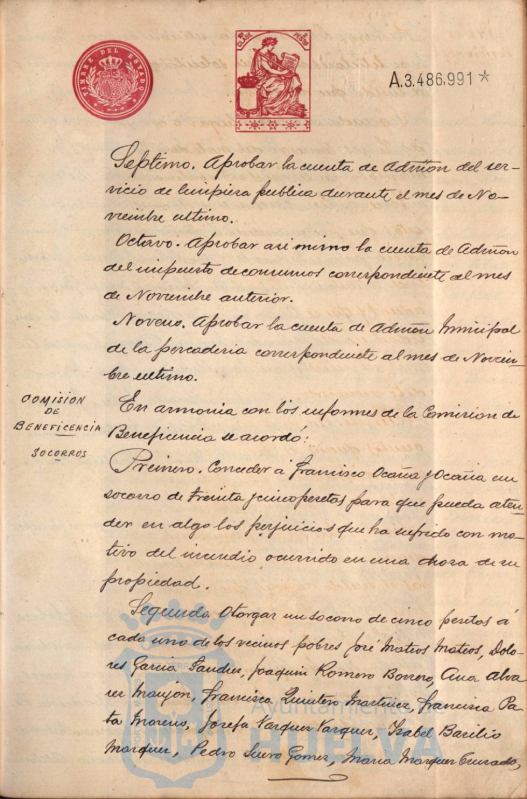 TIMBRE DEL ESTADO
CLASE
PESETA
A.3.486.991*
Septimo. Aprobar la cuenta de Admón del ser-
vicio de limpieza publica durante el mes de No-
viembre ultimo.
Octavo. Aprobar asi mimo la cuenta de Admón
del impuesto de consumos correspondiente al mes
de Noviembre anterior.
Noveno. Aprobar la cuenta de Admón Municipal
de la pescaderia correspondiente al mes de Noviem-
bre ultimo.
COMISION
DE
BENEFICENCIA
SOCORROS
En armonia con los informes de la Comision de
Beneficencia se acordó:
Primero. Conceder á Francisco Ocaña y Ocaña un
socorro de treinta y cinco pesetas para que pueda aten-
der en algo los perjuicios que ha sufrido con mo-
tivo del incendio ocurrido en una choza de su
propiedad.
Segundo. Otorgar un socorro de cinco pesetas á
cada uno de los vecinos pobres José Mateos Mateos, Dolo-
res Garcia Sander, Joaquin Romero Borrero, Ana Alva
rez Maujón, Francisca Quintero Martinez, Francisca Pa-
ta Moreno, Josefa Vazquez Vazquez, Isabel Basilio
Marquez, Pedro Suero Gomez, Maria Marquez Cruzado,
Ayuntamiento
HUELVA